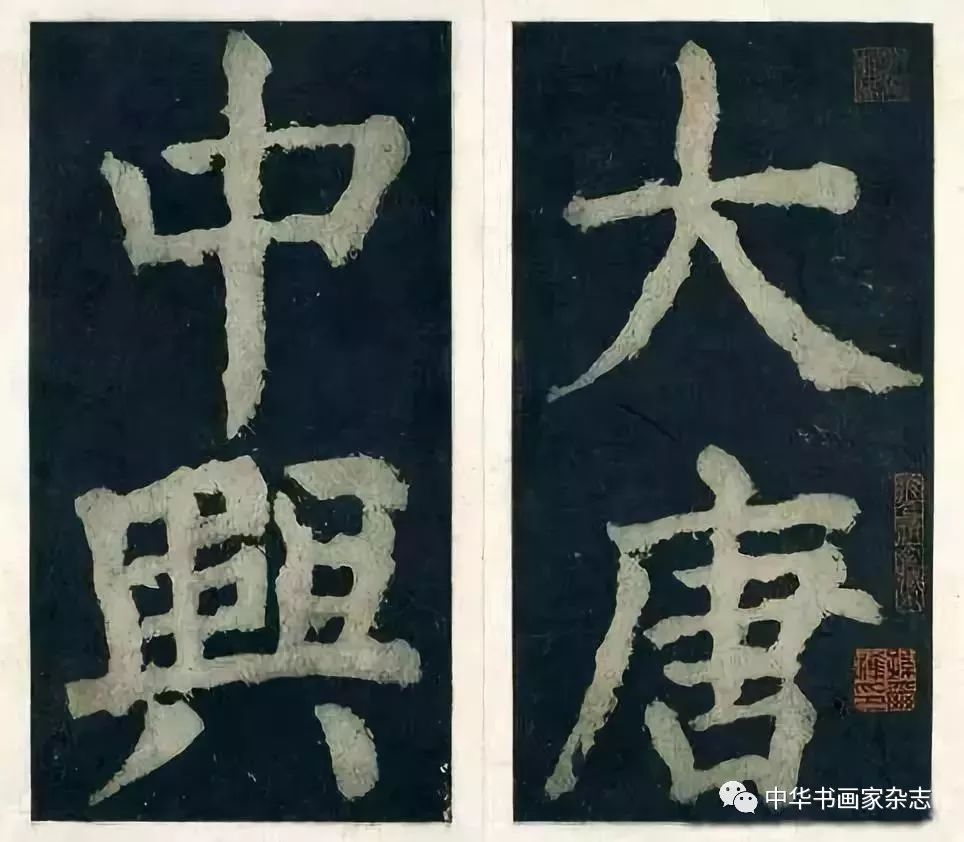 大唐
中興
中华书画家杂志